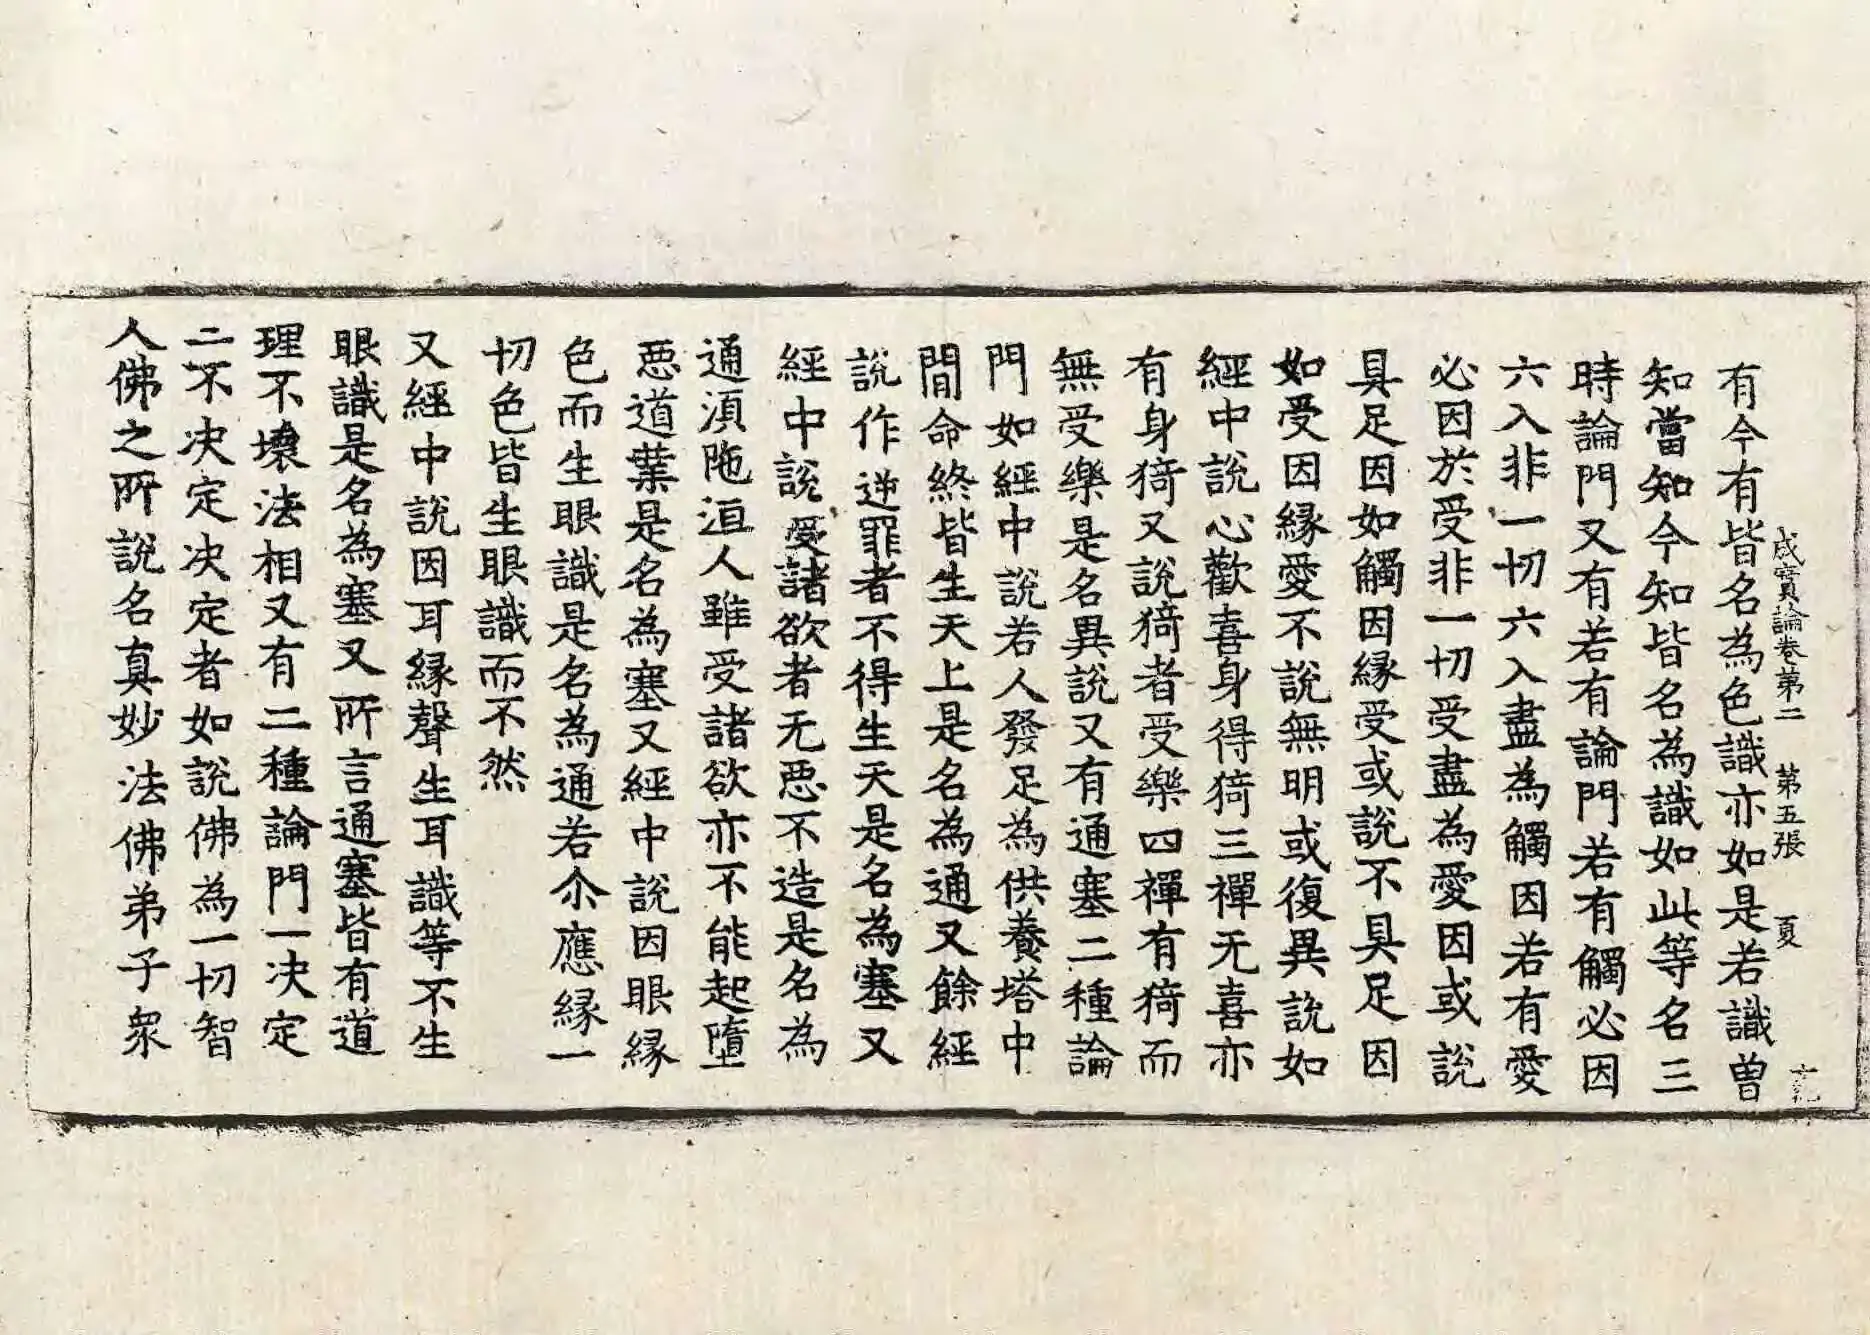 成實論卷第二 第五張 夏
有今有皆名為色識亦如是若識曾
知當知今知皆名為識如此等名三
時論門又有若有論門若有觸必因
六入非一切六入盡為觸因若有愛
必因於受非一切受盡為愛因或說
具足因如觸因縁受或說不具足因
如受因縁愛不說無明或復異說如
經中說心歡喜身得猗三禪无喜亦
有身猗又說猗者受樂四禪有猗而
無受樂是名異說又有通塞二種論
門如經中說若人發足為供養塔中
間命終皆生天上是名為通又餘經
說作逆罪者不得生天是名為塞又
經中說受諸欲者无惡不造是名為
通湏陁洹人雖受諸欲亦不能起墮
惡道業是名為塞又經中說因眼縁
色而生眼識是名為通若尒應縁一
切色皆生眼識而不然
又經中說因耳縁聲生耳識等不生
眼識是名為塞又所言通塞皆有道
理不壞法相又有二種論門一决定
二不决定决定者如說佛為一切智
人佛之所說名真妙法佛弟子衆